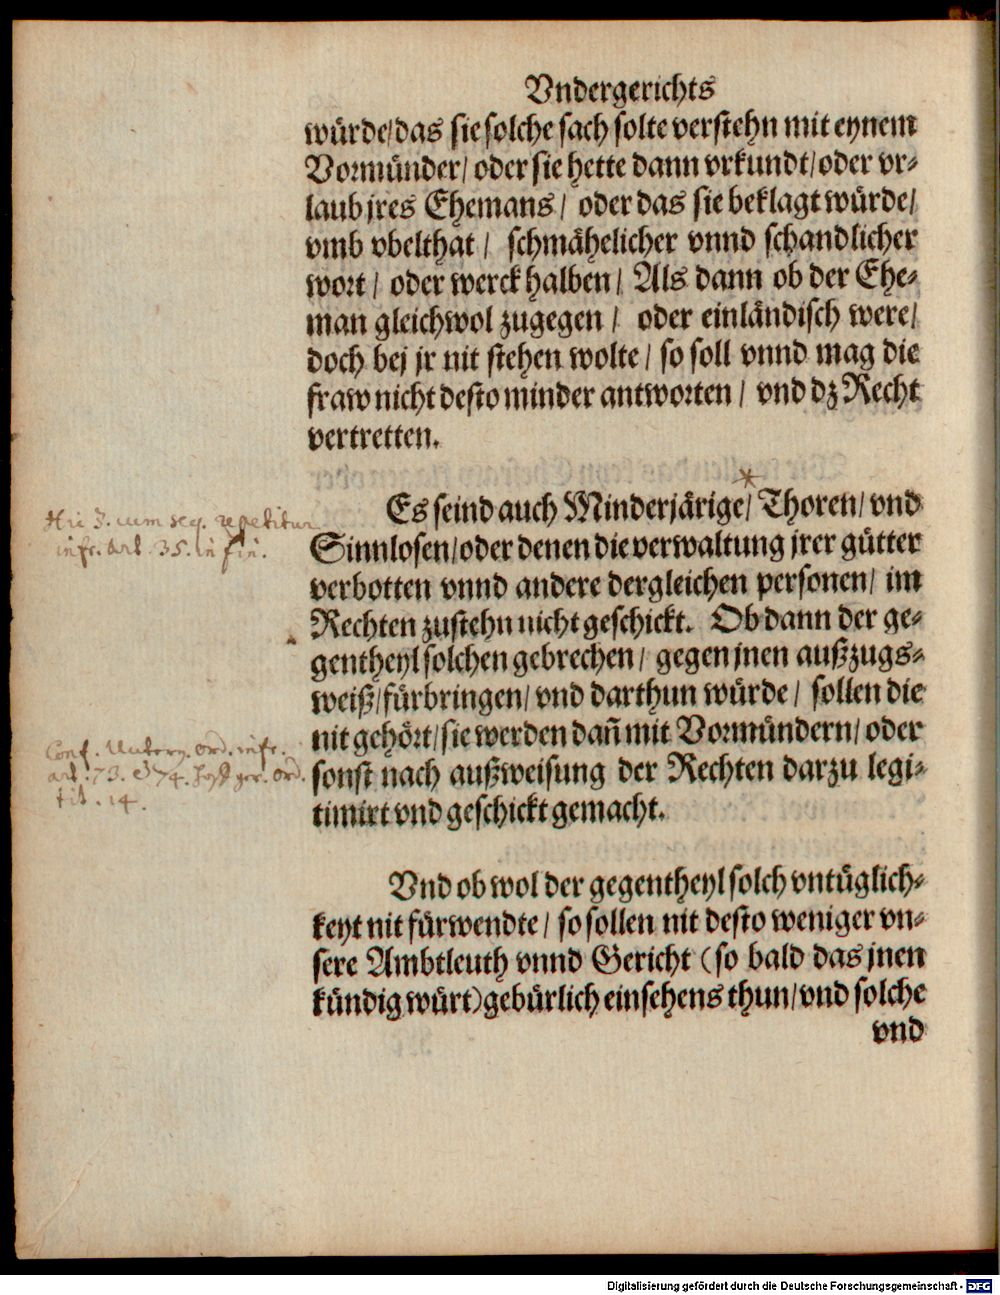 Vndergerichts
würde/das sie solche sach solte verstehn mit eynem
Vormünder/ oder sie hette dann vrkundt/oder vr-
laub jres Ehemans/ oder das sie beklagt würde/
vmb vbelthat/ schmähelicher vnnd schandlicher
wort/ oder werck halben/ Als dann ob der Ehe-
man gleichwol zugegen/ oder einländisch were/
doch bej jr nit stehen wolte/ so soll vnnd mag die
fraw nicht desto minder antworten/ vnd dz Recht
vertretten.
Es seind auch Minderjärige/ Thoren/ vnd
Hic 3. cum seq. repetitur
Sinnlosen/oder denen die verwaltung jrer gütter
infr. art. 35. in fin.
verbotten vnnd andere dergleichen personen/ im
Rechten zustehn nicht geschickt. Ob dann der ge-
gentheyl solchen gebrechen/ gegen jnen außzugs-
weiß/fürbringen/ vnd darthun würde/ sollen die
nit gehört/sie werden dañ mit Vormündern/ oder
Conf. Unterg. ord. infr.
sonst nach außweisung der Rechten darzu legi-
art. 73. & 74. ger. ord.
timirt vnd geschickt gemacht.
tit. 14.
Vnd ob wol der gegentheyl solch vntüglich-
keyt nit fürwendte/ so sollen nit desto weniger vn-
sere Ambtleuth vnnd Gericht (so bald das jnen
kündig würt) gebürlich einsehens thun/vnd solche
vnd
Digitalisierung gefördert durch die Deutsche Forschungsgemeinschaft - DFG